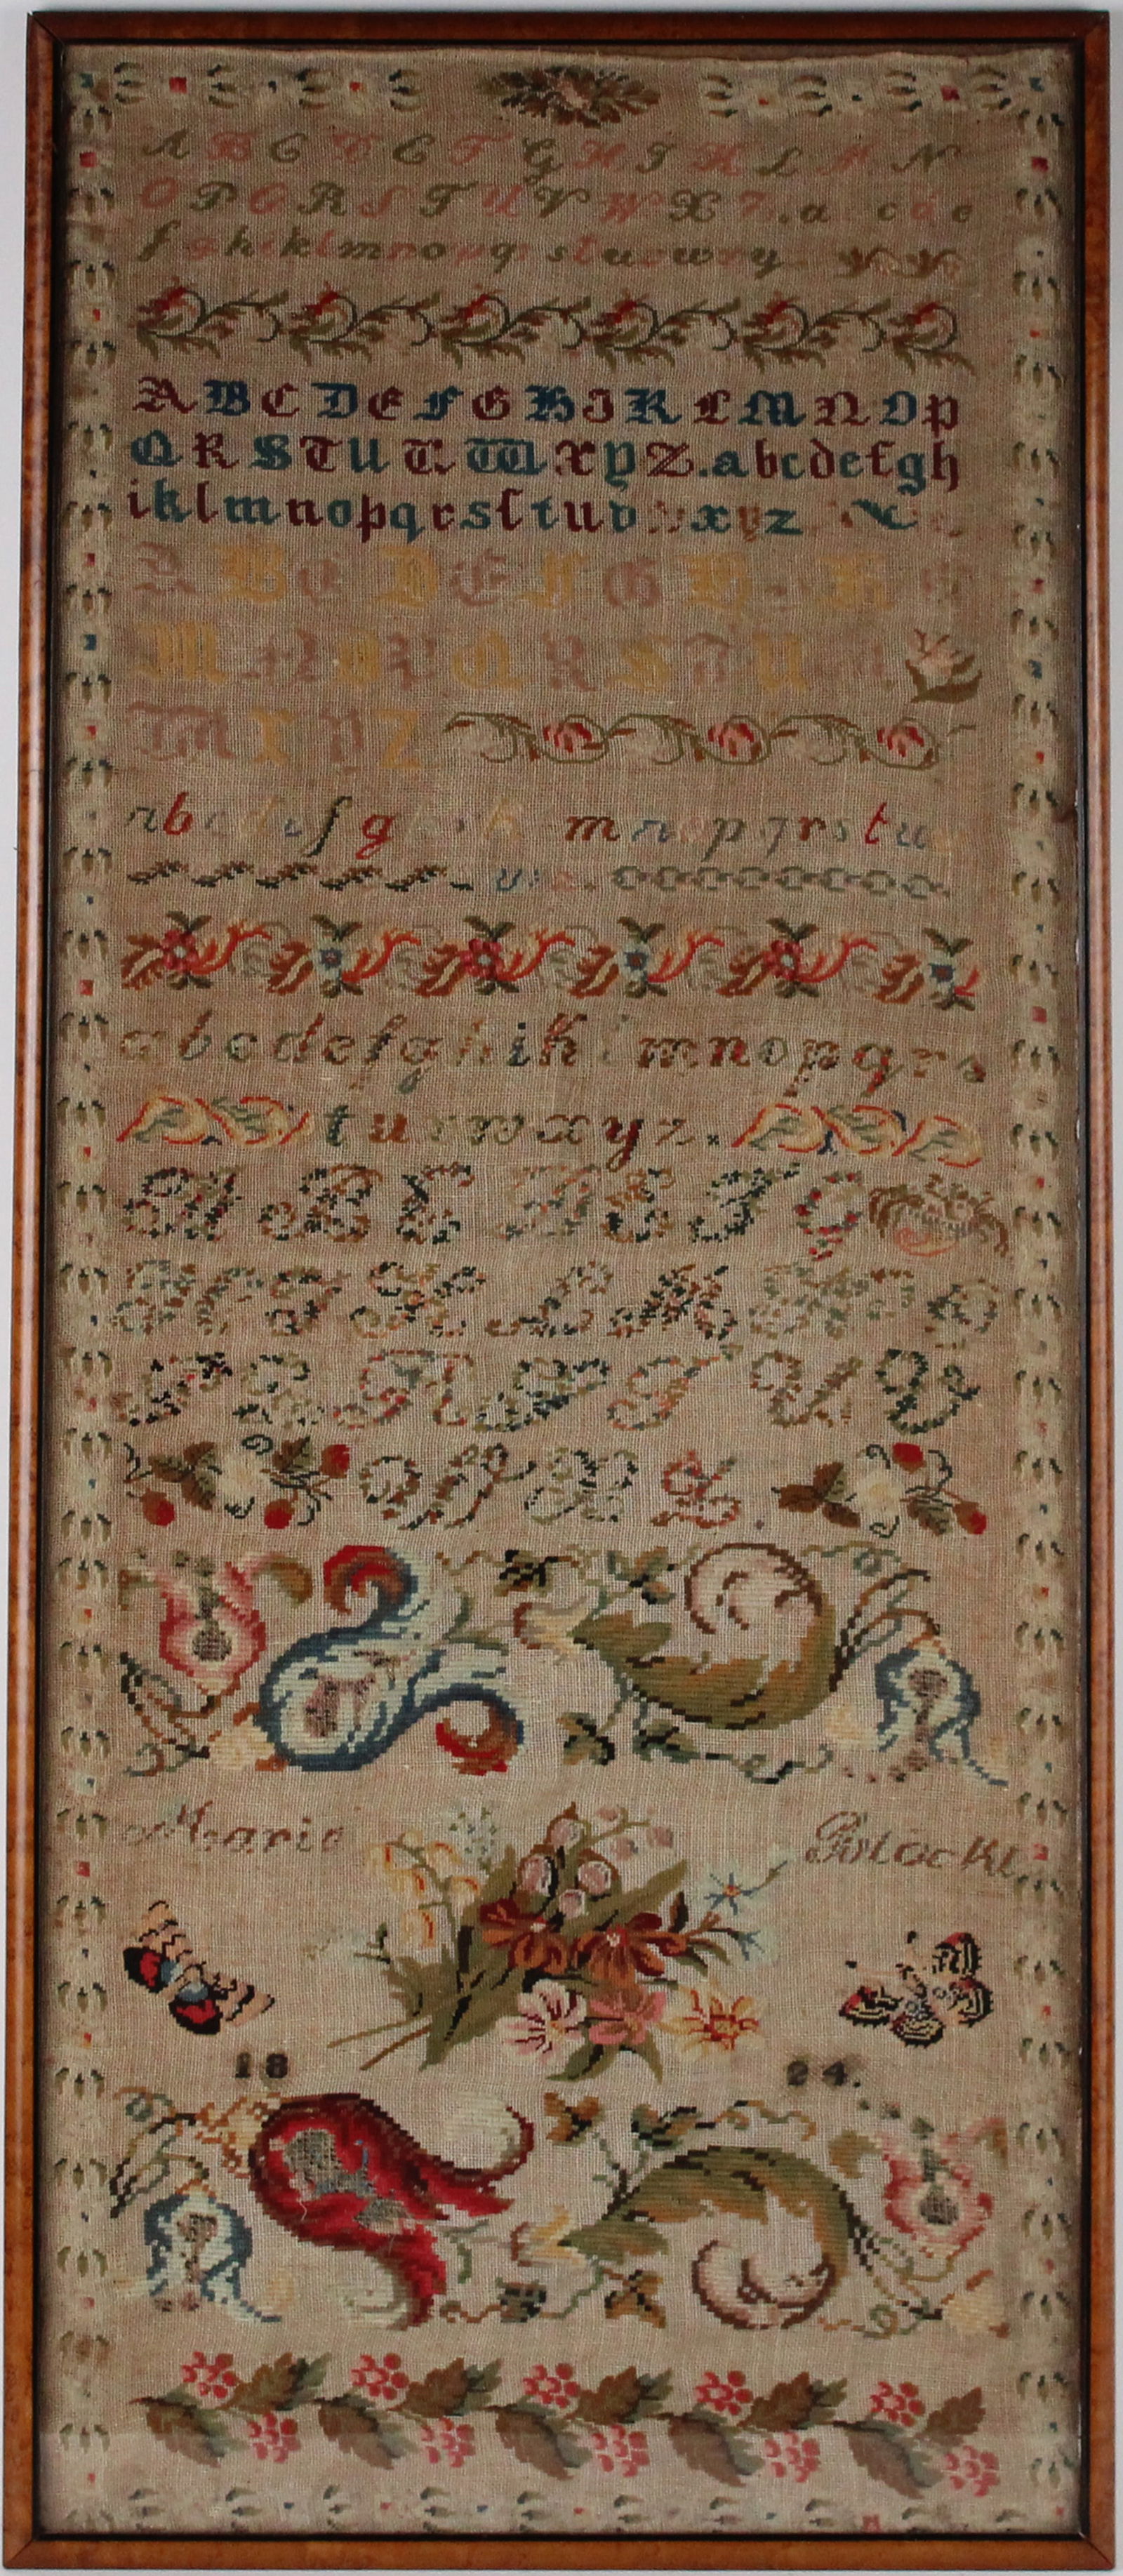 A B C D E F G H I K L M N
O P Q R S T U V W X Z. a c d e
f g h i k l m n o p q s t u v w x y
A B C D E F G H I K L M N O P
Q R S T U V W X Y Z. a b c d e f g h
i k l m n o p q r s ſ t u v w x y z
A B C D E F G H I K
M N O P Q R S T U
W X Y Z
a b c d e f g k m n o p q r s t u
v
a b c d e f g h i k l m n o p q r s
t u v w x y z.
A B C D E F G
H I K L M N O
P Q R S T U V
W X Z.
Marie
18 24.